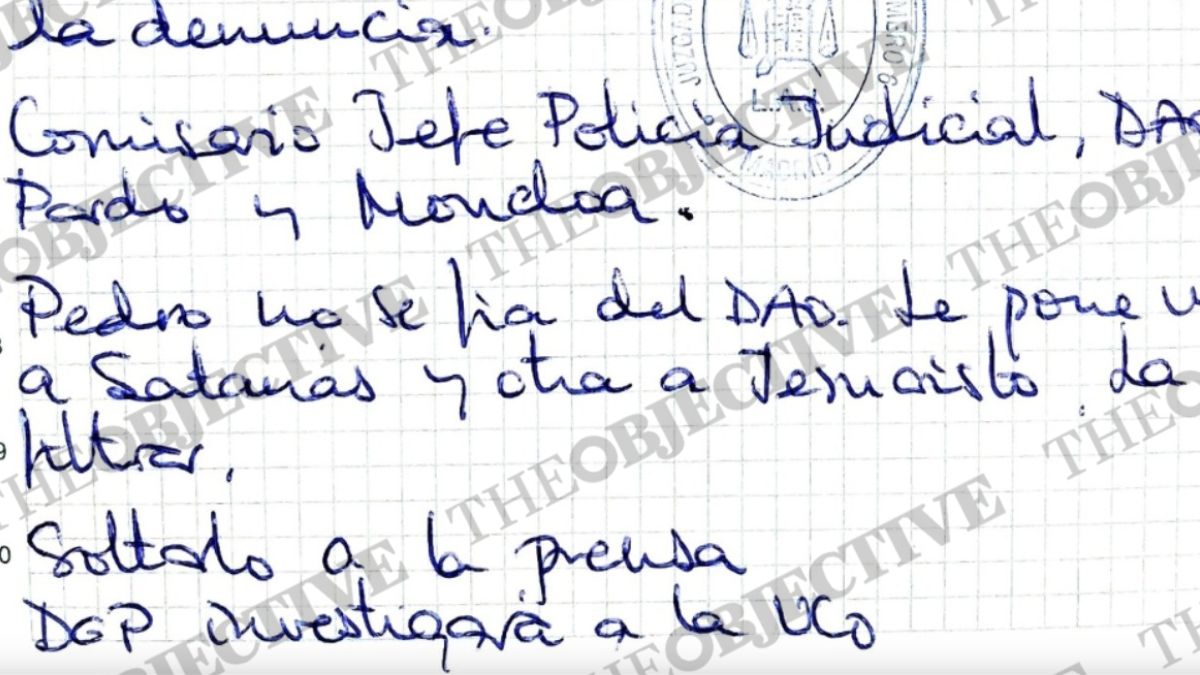 la denuncia.
Comisario Jefe Policía Judicial, DAO
Pardo y Moncloa.
Pedro no se fía del DAO. Le pone u
a Satanás y otra a Jesucristo. La
filtrar.
Soltarlo a la prensa
DGP investigará a la UCO
JUZGAD
MERO 6
MADRID
THEOBJECTIVE
THEOBJECTIVE
THEOBJECTIVE
THEOBJECTIVE
THEOBJECTIVE
THEOBJECTIVE
THEOBJECTIVE